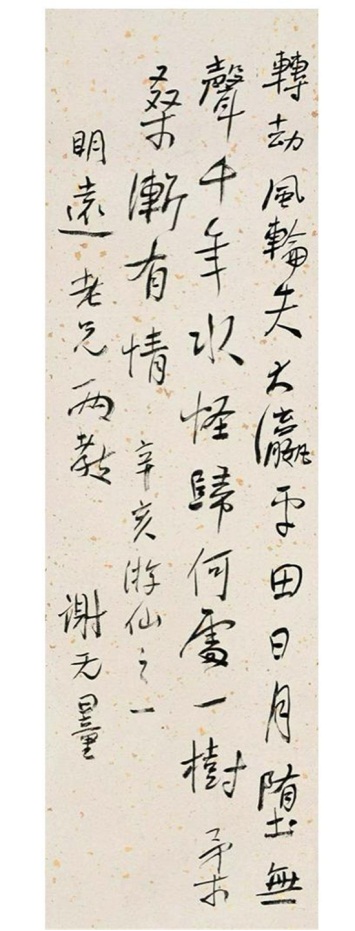 轉劫風輪失大瀛平田日月墮無
聲千年水怪歸何處一樹柔
桑漸有情 辛亥游仙之一
明遠老兄兩教
謝无量